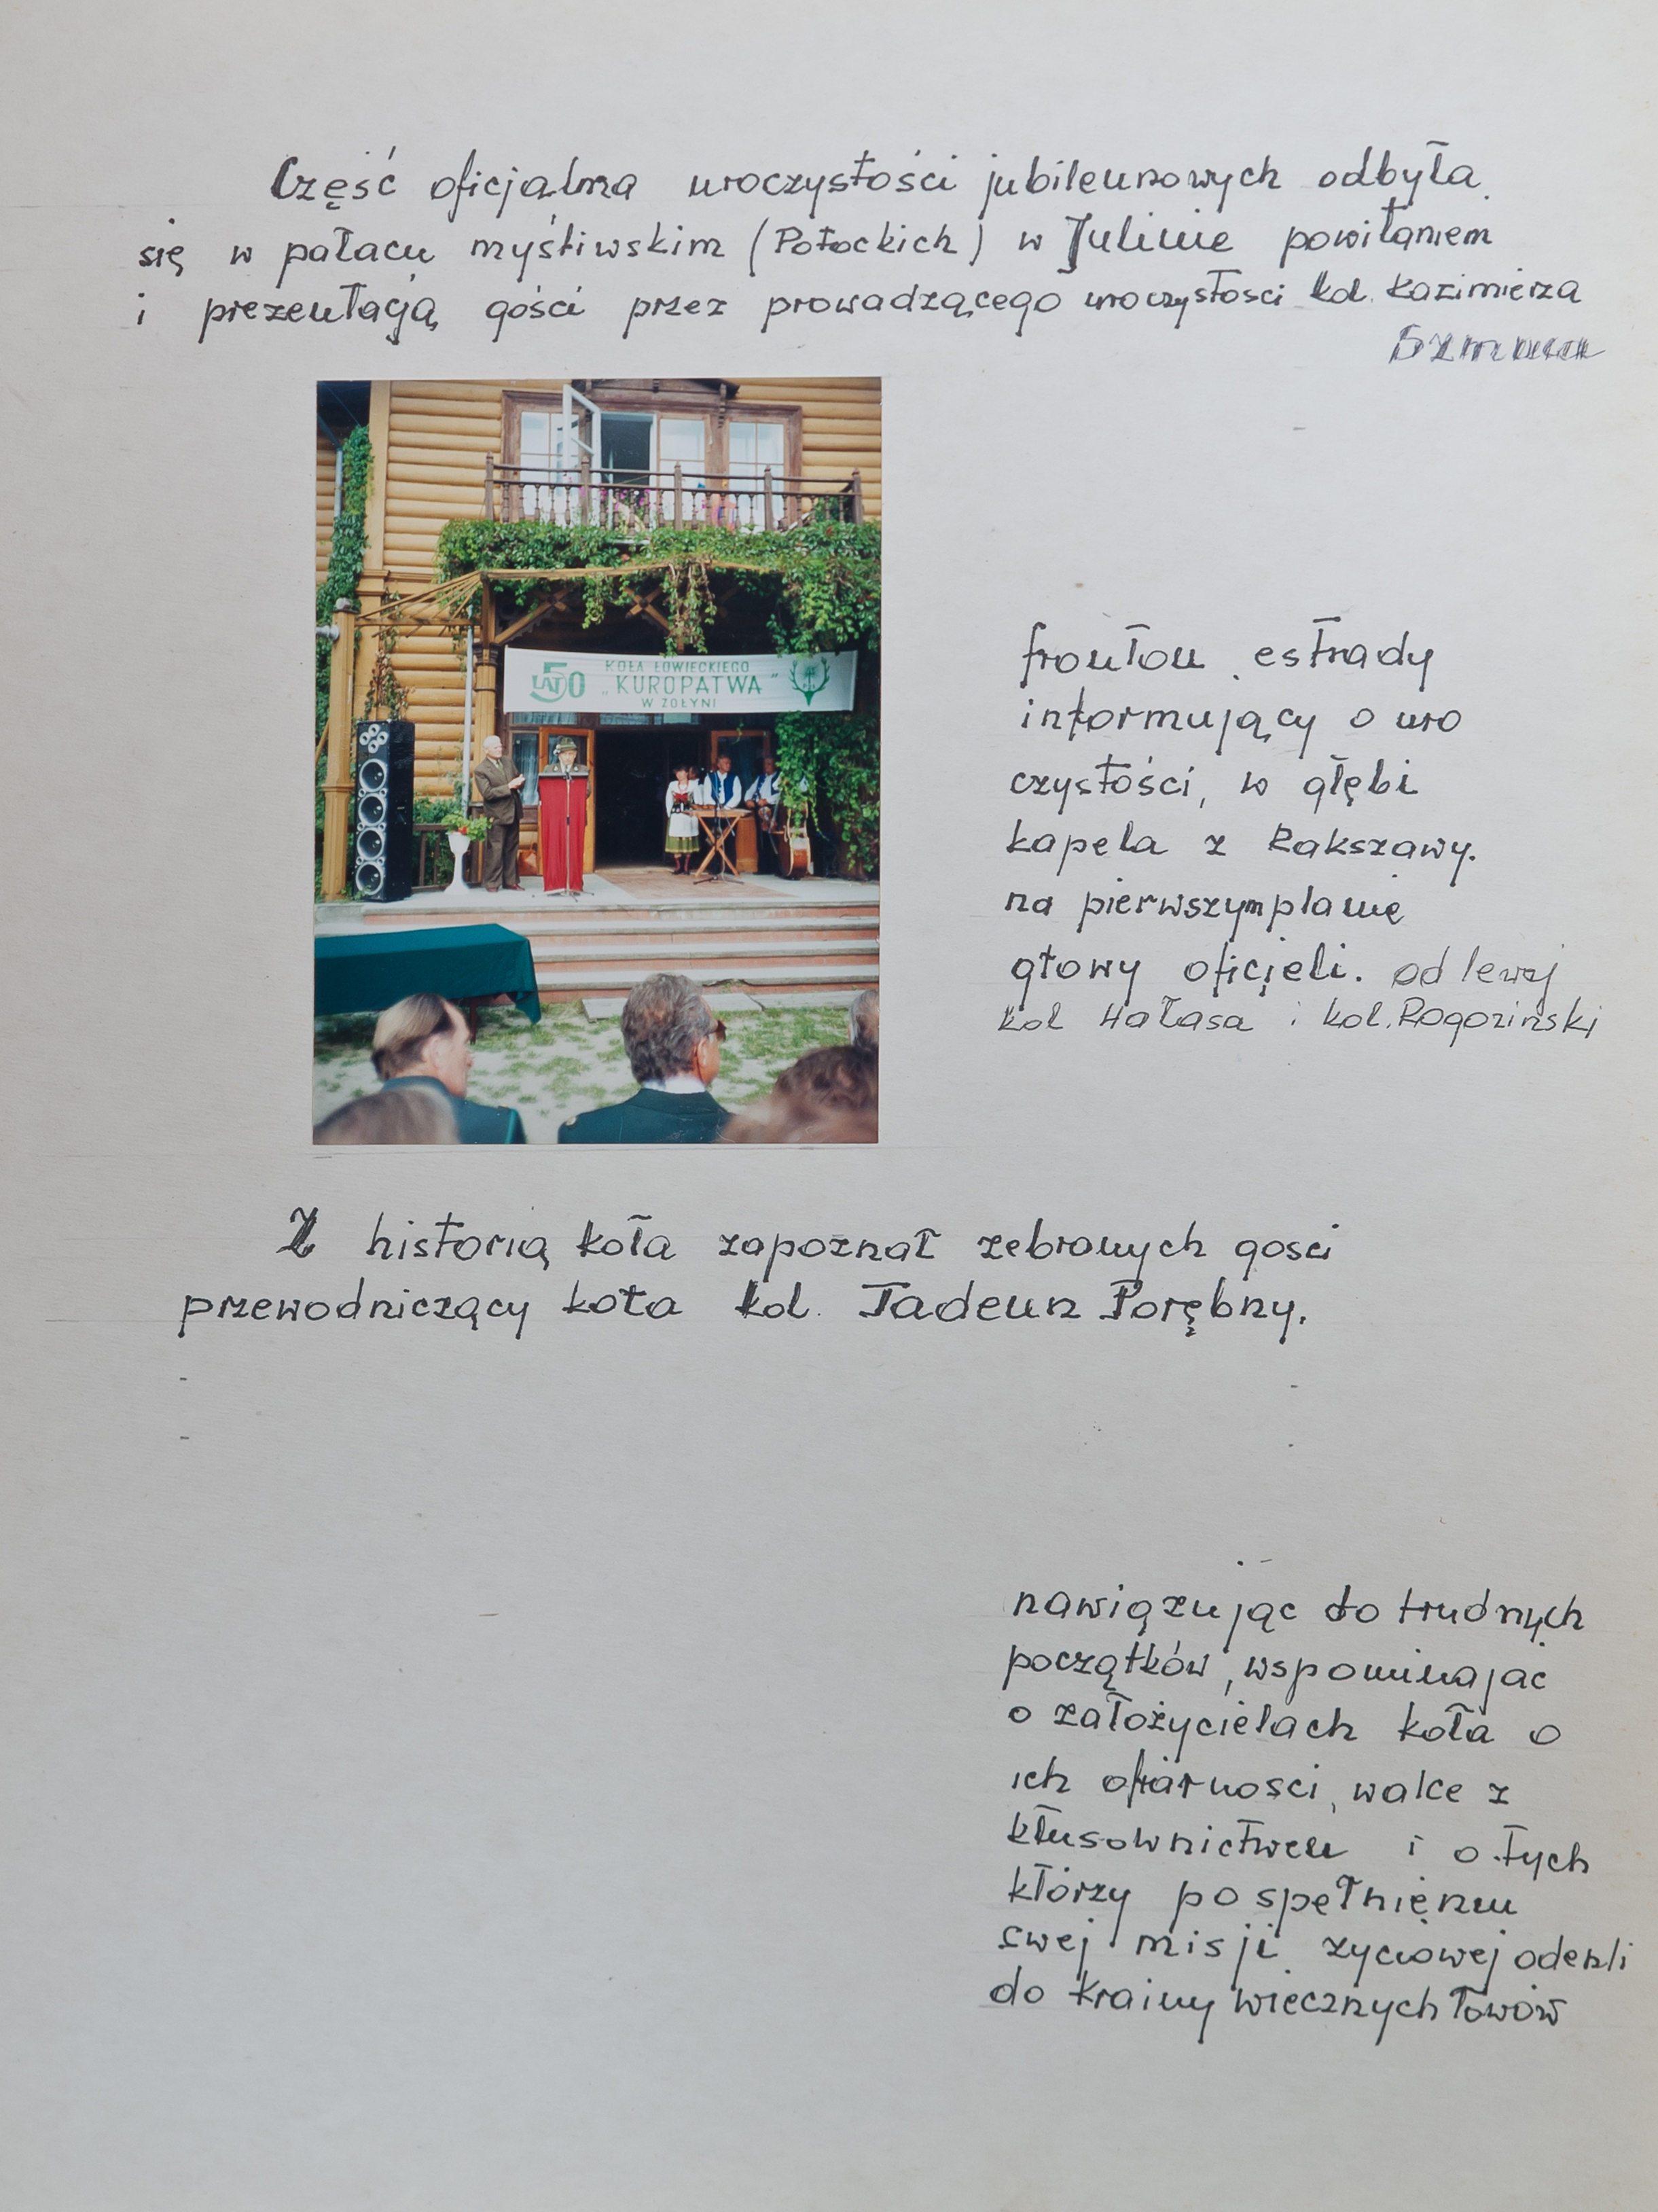 Część oficjalna uroczystości jubileuszowych odbyła
się w pałacu myśliwskim (Potockich) w Julinie powitaniem
i prezentacją gości przez prowadzącego uroczystości kol. Kazimierza
50 LAT KOŁA ŁOWIECKIEGO
„KUROPATWA"
W ŻOŁYNI
fronton estrady
informujący o uro
czystości, w głębi
kapela z Rakszawy.
na pierwszym planie
głowy oficjeli. od lewej
kol Hałasa i kol. Rogoziński
Z historią koła zapoznał zebranych gości
przewodniczący koła kol. Tadeusz Porębny.
nawiązując do trudnych
początków, wspominajac
o założycielach koła o
ich ofiarności, walce z
kłusownictwem i o tych
którzy po spełnieniu
swej misji życiowej odeszli
do krainy wiecznych łowów